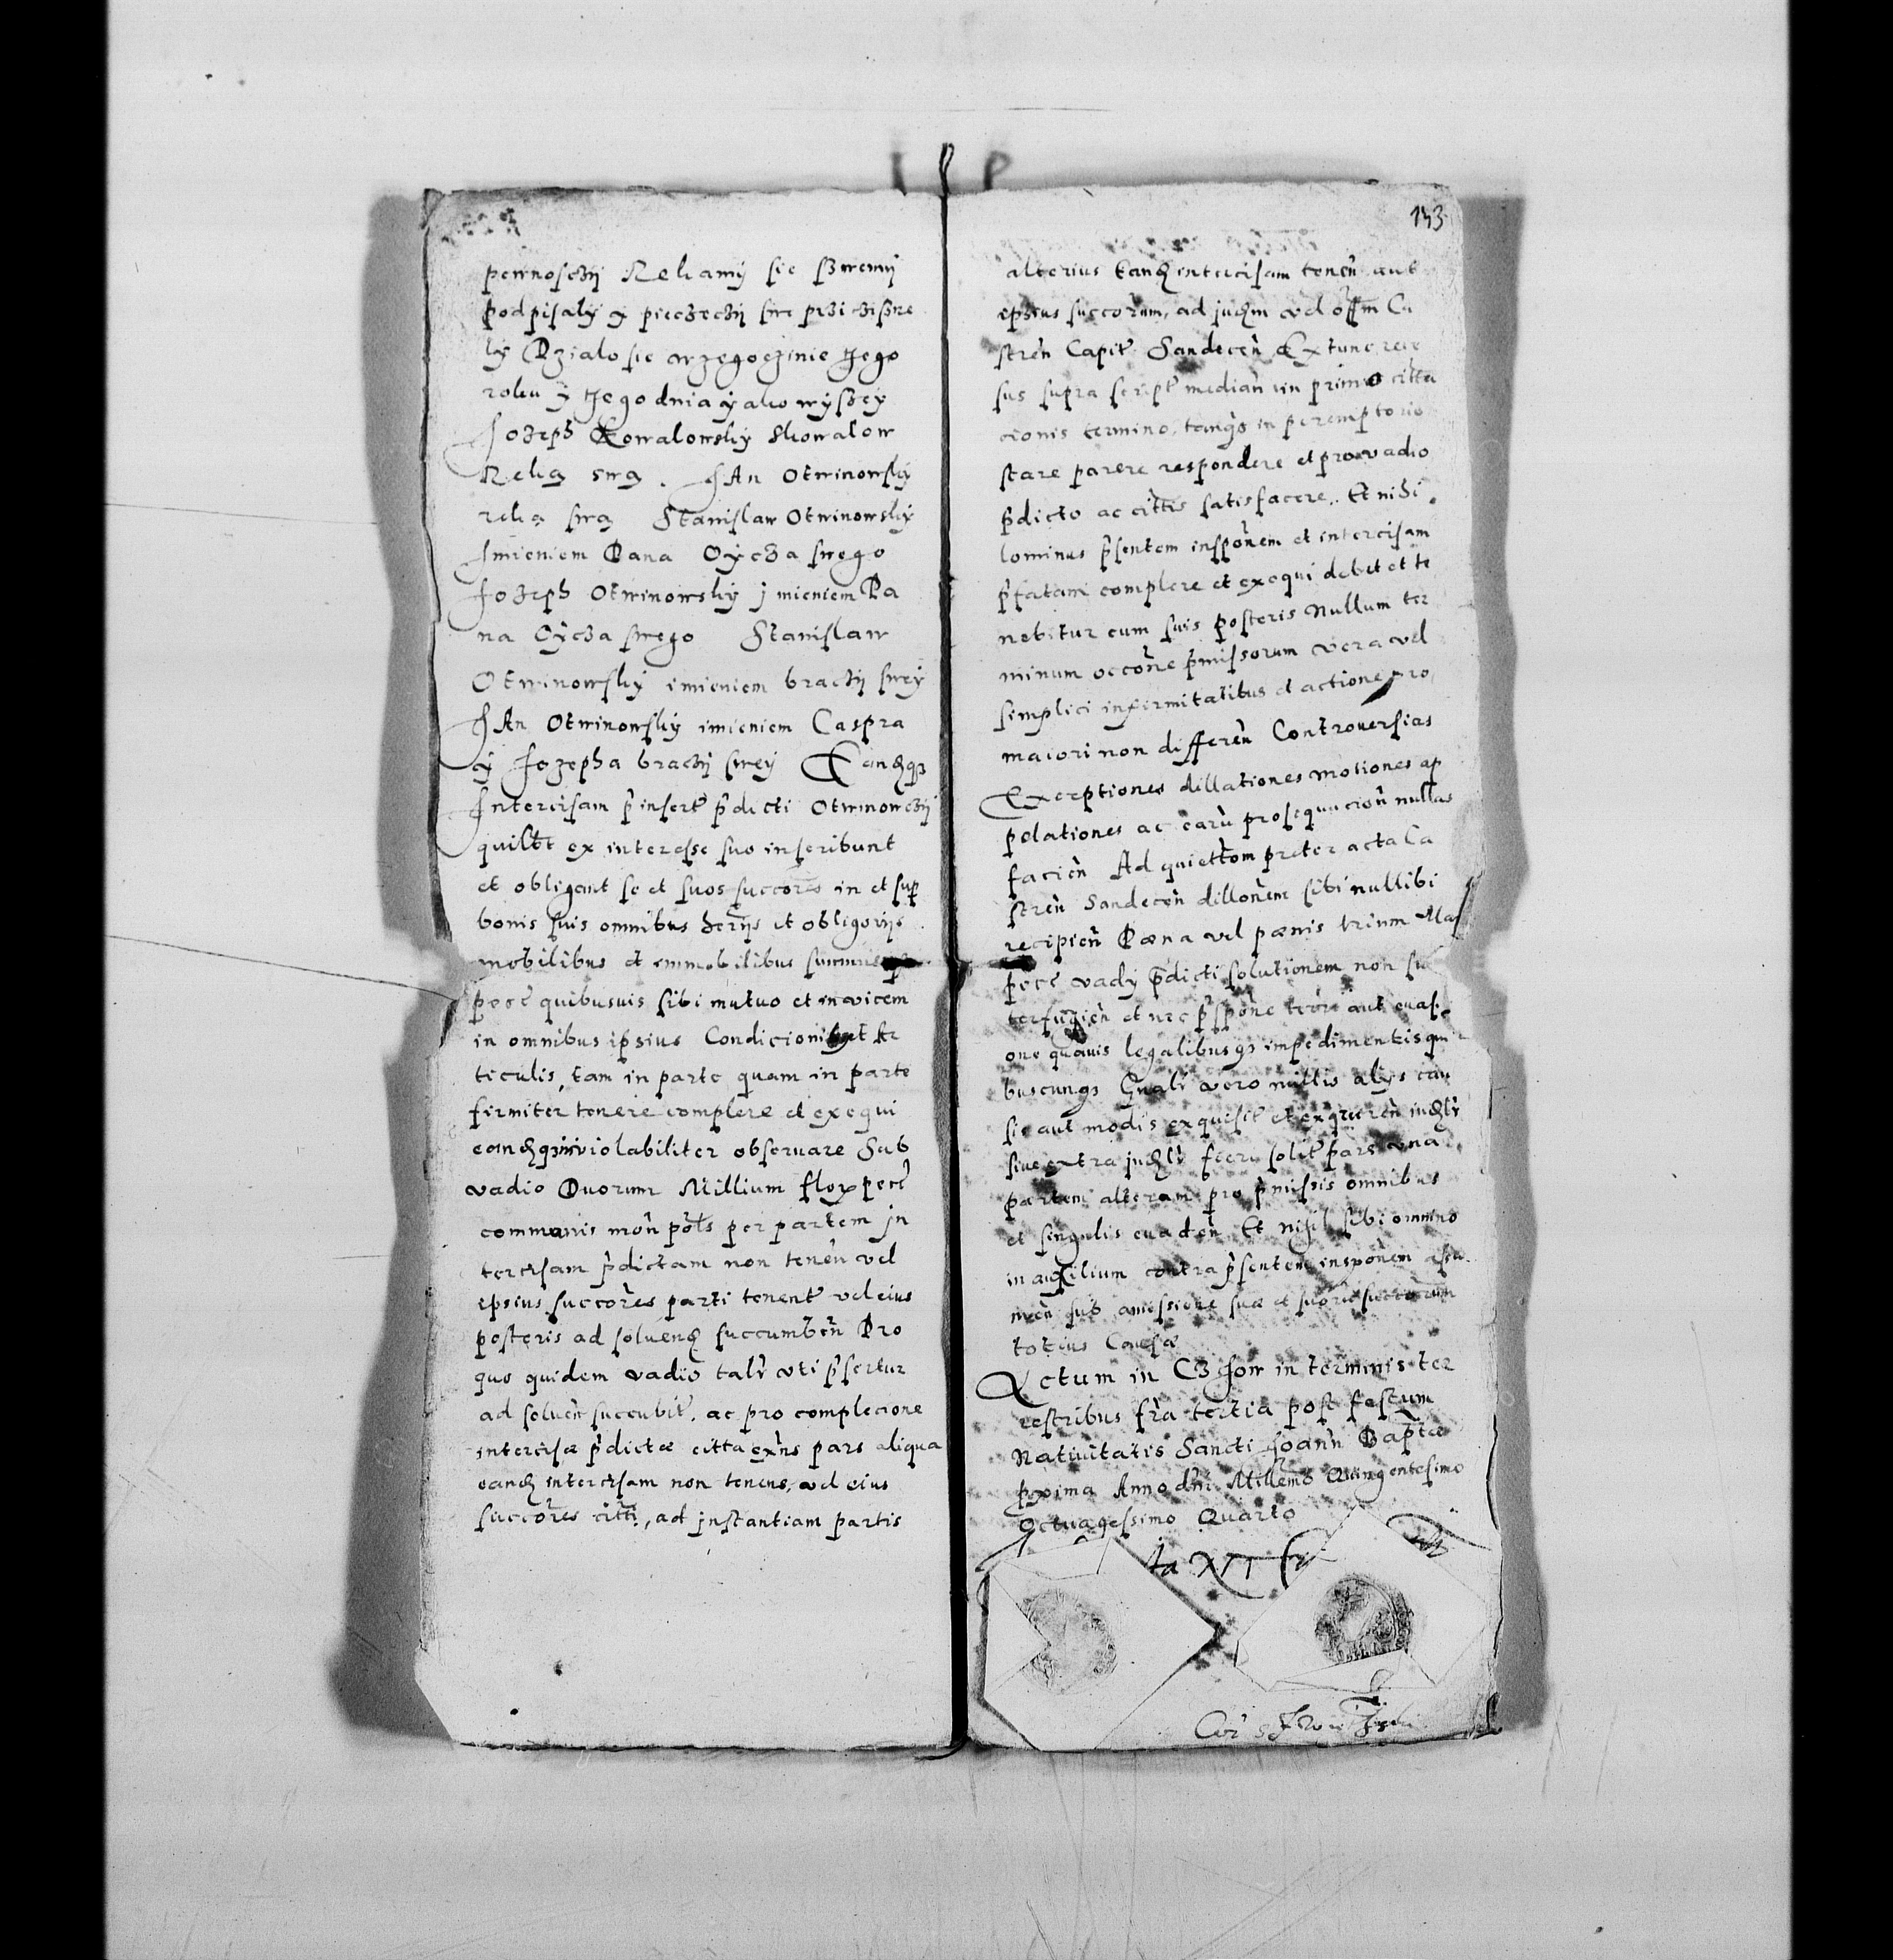 pewnosczÿ Rekamÿ sie sszwemÿ
podpisalÿ y pieczeczÿ swe prziczisne
lÿ Dzialo sie wzegoczinie tego
roku ÿ tego dnia ÿako wÿszeÿ
Jozeph Kowalowskÿ Skowalow
Reką swą. JAn Otwinowskÿ
reką swą Stanislaw Otwinowskÿ
Jmieniem Pana Oÿcza swego
Jozeph Otwinowskÿ jmieniem Pa
na Oÿcza swego Stanislaw
Otwinowskÿ imieniem braczÿ sweÿ
JAn Otwinowskÿ imieniem Caspra
ÿ Jozepha braczÿ sweÿ Eandqꝫ
Intercisam p̃insert p̃dicti Otwinowczÿ
quilt ex interesse suo inscribunt
et obligant se et suos succores in et sup
bonis suis omnibus hereÿs et obligorÿs
mobilibus et immobilibus summis
pecc quibusuis sibi mutuo et invicem
in omnibus ipsius Condicionibus et Ar
ticulis, tam in parte quam in parte
firmiter tenere complere et exequi
eandqꝫ inviolabiliter obseruare Sub
vadio Duorum Millium flor pecc
communis mon polts per partem jn
tercisam p̃dictam non tenen vel
ipsius succores parti tenent vel eius
posteris ad soluend succumben Pro
quo quidem vadio tali vti p̃fertur
ad soluen succubit, ac pro complecione
intercisæ p̃dictæ citta exns pars aliqua
eand intercisam non tenens, vel eius
succores citti, ad jnstantiam partis
143
alterius eand intercisam tenen aut
ipsius succorum, ad judm vel offm Ca
stren Capit Sandecen Extunc rece
sus supra script median in primo citta
cionis termino, tanqꝫ in peremptorio
stare parere respondere et pro vadio
p̃dicto ac cittis satisfacere. Et nihi
lominus p̃sentem insponem et intercisam
p̃fatam complere et exequi debet et te
nebitur cum suis posteris Nullum ter
minum occone p̃missorum vera vel
simplici infirmitatibus et actione pro
maiori non differen Controuersias
Exceptiones dillationes motiones ap
pelationes ac earu prosequucion nullas
facien Ad quiettom preter acta Ca
stren Sandecen dillonem sibi nullibi
recipien Pæna vel pænis trium Mar
pecc vadÿ p̃dicti solutionem non su
terfugien et nec p̃spone terri aut euasi
one quauis legalibusqꝫ impedimentis qui
buscunqꝫ Gnali vero nullis alÿs cau
sis aut modis exquisit et exquiren iudlr
siue extra judlr fieri solit pars vna
partem alteram pro p̃missis omnibus
et singulis euaden Et nihil sibi omnino
in auxilium contra p̃sentem insponem assu
men sub amissione suæ et suoru succorum
totius Causæ
Actum in Czchow in terminis ter
restribus fria tertia post festum
Natiuitatis Sancti Joann Baptæ
pxima Anno dni Millemo Quingentesimo
Octuagessimo Quarto